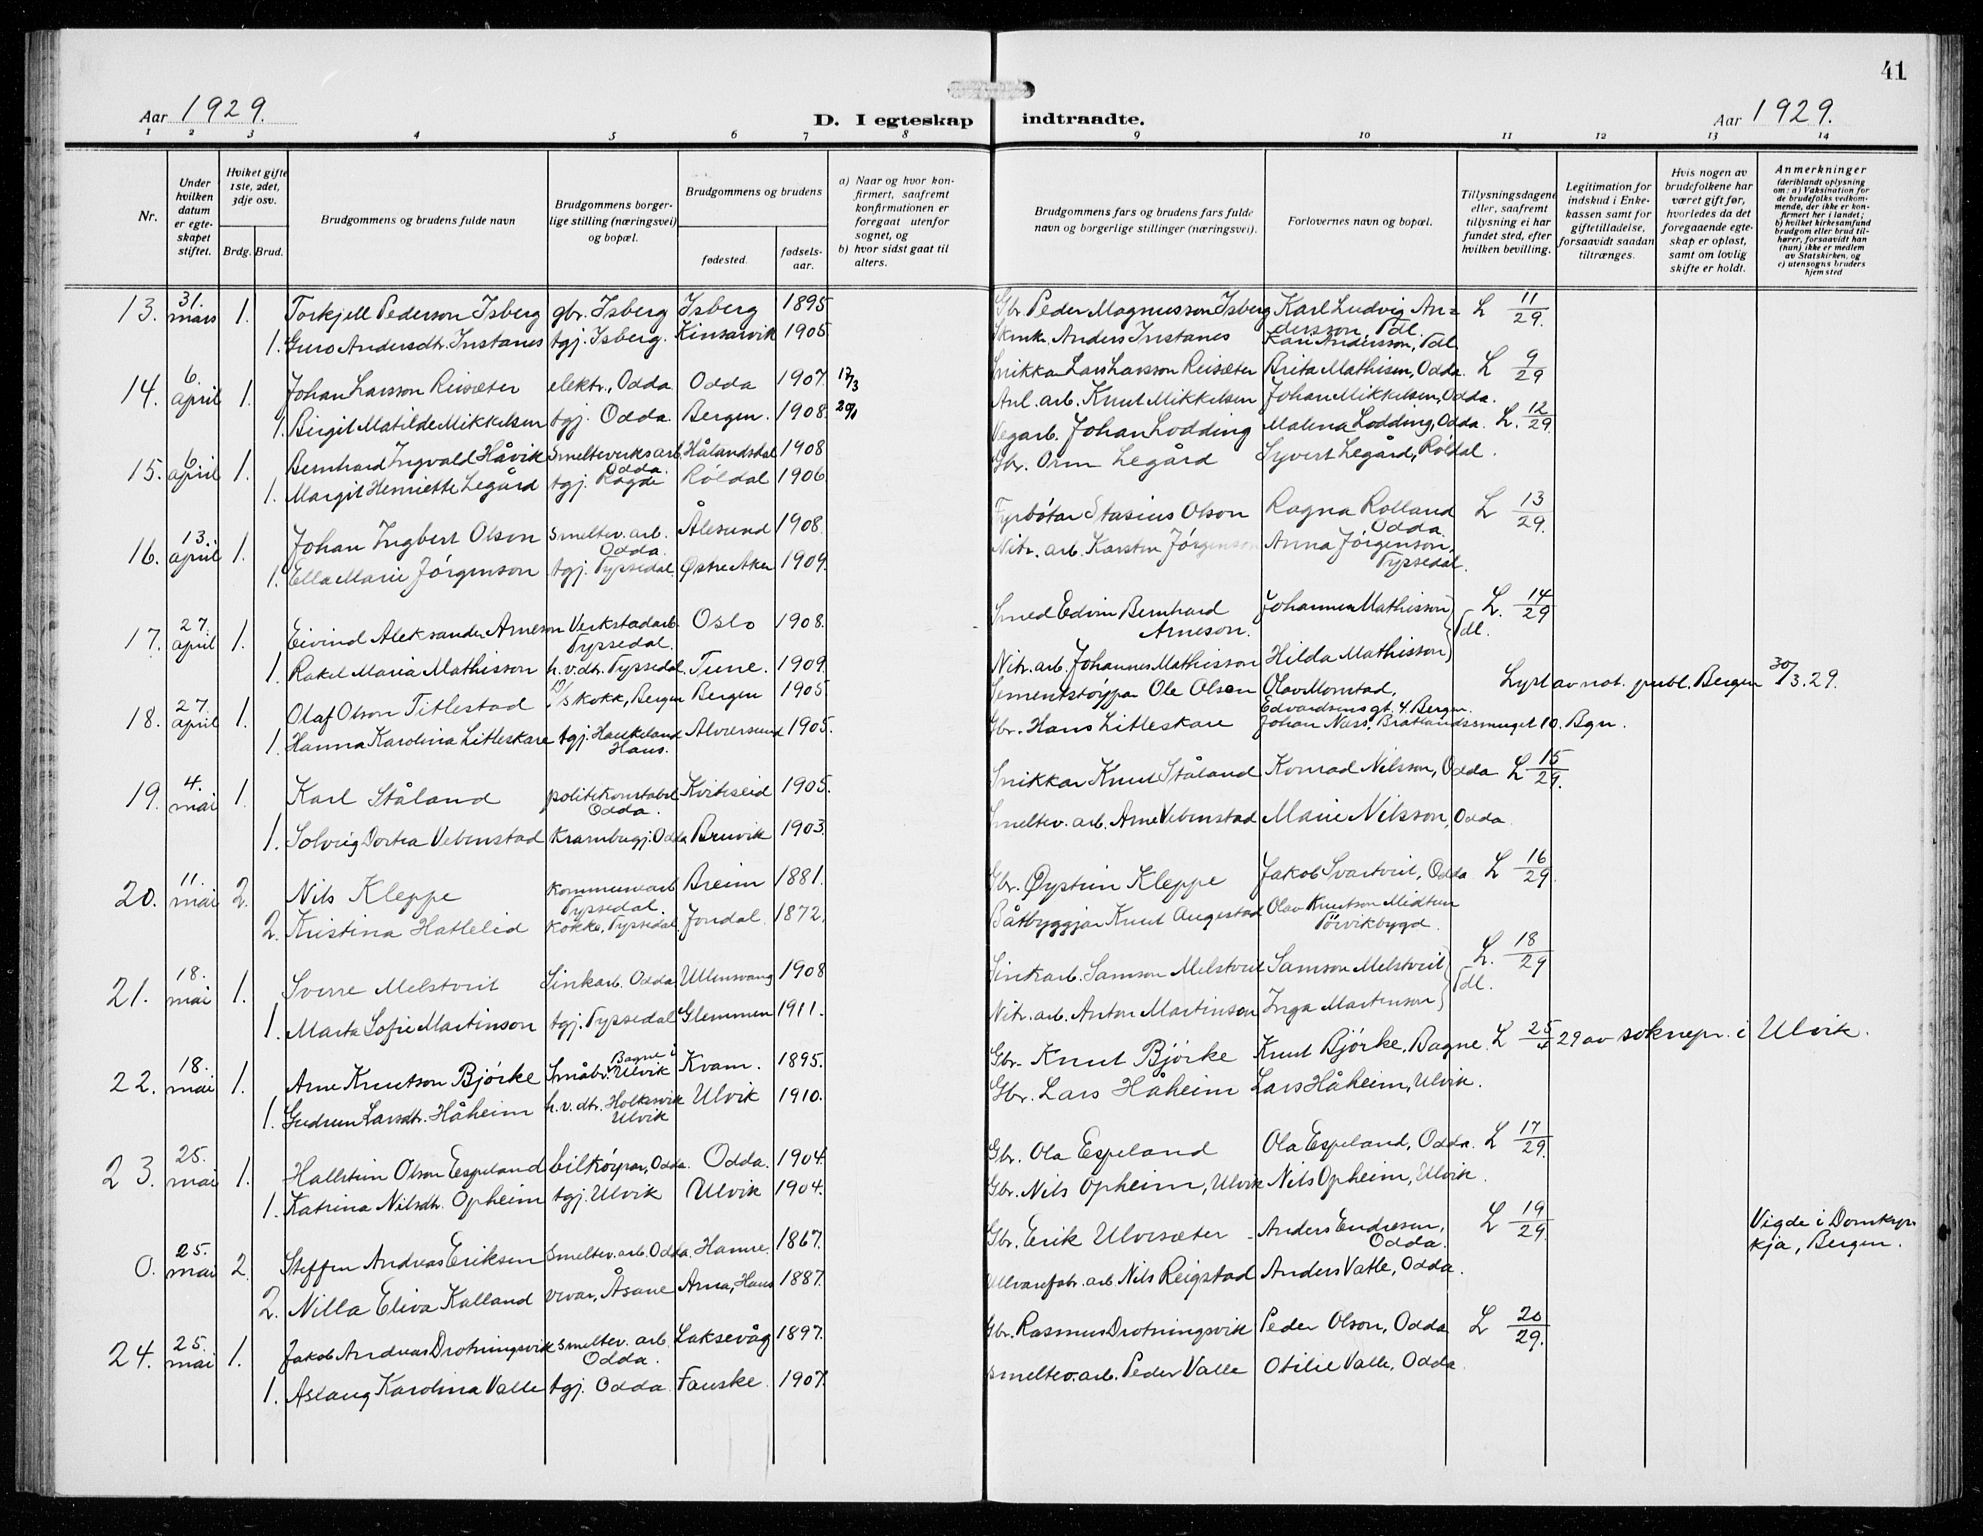 41
Aar 1929. D. I egteskap indtraadte. Aar 1929.
1 2 3 4 5 6 7 8 9 10 11 12 13 14
Nr.
Under hvilken datum er egteskapet stiftet.
Hviket gifte 1ste, 2det, 3dje osv.
Brdg. Brud.
Brudgommens og brudens fulde navn
Brudgommens borgerlige stilling (næringsvei) og bopæl.
Brudgommens og brudens
fødested.
fødselsaar.
a) Naar og hvor konfirmert, saafremt konfirmationen er foregaat utenfor sognet, og
b) hvor sidst gaat til alters.
Brudgommens fars og brudens fars fulde navn og borgerlige stillinger (næringsvei).
Forlovernes navn og bopæl.
Tillysningsdagene eller, saafremt tillysning ei har fundet sted, efter hvilken bevilling.
Legitimation for indskud i Enkekassen samt for giftetilladelse, forsaavidt saadan tiltrænges.
Hvis nogen av brudefolkene har været gift før, hvorledes da det foregaaende egteskap er opløst, samt om lovlig skifte er holdt.
Anmerkninger
(deriblandt oplysning om: a) Vaksination for de brudefolks vedkommende, der ikke er konfirmert her i landet; b) hvilket kirkesamfund brudgom eller brud tilhører, forsaavidt han (hun) ikke er medlem av Statskirken, og c) utensogns bruders hjemsted
13. 31. mars 1. Torkjell Pederson Isberg gbr. Isberg Isberg 1895 Gbr. Peder Magnusson Isberg Karl Ludvig Andersson, Tdl. L 11/29.
1. Guro Andersdtr. Instanes tgj. Isberg. Kinsarvik 1905 Skrnk. Anders Instanes Kari Andersson, Tdl.
14. 6. april 1. Johan Larsson Reisæter elektr., Odda Odda 1907. 17/3 Snikkar Lars Larsson Reisæter Brita Mathisen, Odda. L 9/29
1. Birgit Matilde Mikkelsen tgj. Odda Bergen. 1908. Anl. arb. Knut Mikkelsen Johan Mikkelsen, Odda.
15. 6. april 1. Bernhard Ingvald Håvik Smelteverksarb. Odda. Hålandsdal 1908 Vegarb. Johan Lodding Malena Lodding, Odda. L. 12/29.
1. Margit Henriette Legård tgj. Ragde Røldal 1906 Gbr. Orm Legård Syvert Legård, Røldal.
16. 13. april 1. Johan Ingbert Olson smeltev. arb. Odda. Ålesund 1908. Fyrbøtar Stasius Olson Ragna Rolland Odda. L 13/29.
1. Ella Marie Jørgenson tgj. Tyssedal Østre Aker 1909. Nitr. arb. Karsten Jørgenson Anna Jørgenson, Tyssedal.
17. 27. april 1. Eivind Aleksander Arneson Verkstadarb. Tyssedal. Oslo 1908. Smed Edvin Bernhard Arneson. Johannes Mathisson L. 14/29
1. Rakel Maria Mathisson h.v.dtr. Tyssedal Tune. 1909. Nitr. arb. Johannes Mathisson Hilda Mathisson Tdl.
18. 27. april 1. Olaf Olson Titlestad D/S kokk, Bergen Bergen 1905 Sementstøypar Ole Olsen Olav Monstad, Edvardsens gt. 4 Bergen. Lyst av not. publ. Bergen 30/3.29.
1. Hanna Karolina Litleskare tgj. Haukeland Haus. Alversund 1905. Gbr. Hans Litleskare Johan Næss, Bratlandssmuget 10. Bgn.
19. 4. mai 1. Karl Ståland politikonstabel Odda. Kviteseid 1905. Snikkar Knut Ståland Konrad Nilsson, Odda L 15/29.
1. Solveig Dortea Vebenstad Krambugj. Odda Bruvik 1903. Smeltev. arb. Arne Vebenstad Marie Nilsson, Odda
20. 11. mai 2. Nils Kleppe kommunearb Tyssedal. Breim 1881. Gbr. Øystein Kleppe Jakob Svartveit, Odda L 16/29.
2. Kristina Hatleleid Kokke, Tyssedal. Jondal 1872. Båtbyggjar Knut Augestad Olav Knutson Midtun Tørvikbygd.
21. 18. mai 1. Sverre Melstveit Sinkarb. Odda Ullensvang 1908 Sinkarb. Samson Melstveit Samson Melstveit L. 18/29
1. Marta Sofie Martinson tgj. Tyssedal Glemmen 1911. Nitr. arb. Anton Martinson Inga Martenson Tdl.
22. 18. mai 1. Arne Knutson Bjørke Småbr. Bagne i Ulvik Kvam. 1895. Gbr. Knut Bjørke Knut Bjørke, Bagne. L 25/4 29 av soknepr. i Ulvik.
1. Gudrun Larsdtr. Håheim h.v.dtr. Holksvik Ulvik Ulvik 1910. Gbr. Lars Håheim Lars Håheim, Ulvik.
23. 25. mai 1. Hallstein Olson Espeland bilkøyrar, Odda. Odda. 1904. Gbr. Ola Espeland Ola Espeland, Odda. L 17/29.
1. Katrina Nilsdtr. Opheim tgj. Ulvik Ulvik 1904. Gbr. Nils Opheim, Ulvik Nils Opheim, Ulvik.
0. 25. mai 2. Steffen Andreas Eriksen Smeltev. arb. Odda. Hamre. 1867. Gbr. Erik Ulvesæter Anders Endresen, Odda. L 19/29. Vigde i Domkyrkja, Bergen.
2. Nilla Eliva Kalland Åsane Arna, Haus 1887. Ullvarefabr. arb Nils Reigstad Anders Vatle, Odda.
24. 25. mai 1. Jakob Andreas Drotningsvik smeltev. arb. Odda. Laksevåg 1897. Gbr. Rasmus Drotningsvik Peder Olson, Odda L 20/29.
1. Aslaug Karolina Valle tgj. Odda. Fauske. 1907. smeltev. arb. Peder Valle Otilie Valle, Odda.